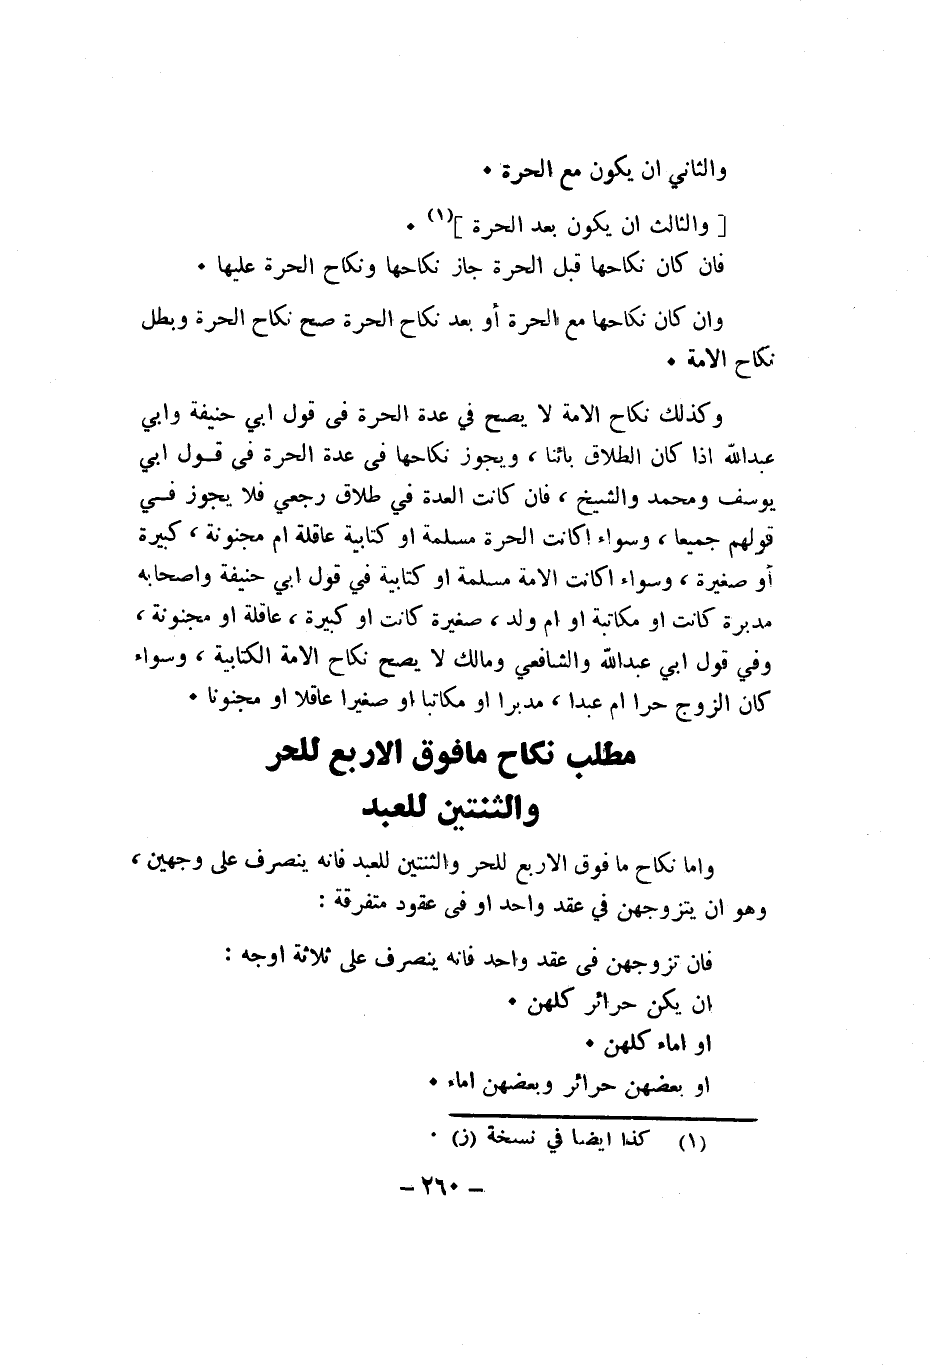 والثاني ان يكون مع الحرة ٠
[ والثالث ان يكون بعد الحرة ](١) ٠
فان كان نكاحها قبل الحرة جاز نكاحها ونكاح الحرة عليها ٠
وان كان نكاحها مع الحرة أو بعد نكاح الحرة صح نكاح الحرة وبطل
نكاح الامة ٠
وكذلك نكاح الامة لا يصح في عدة الحرة فى قول ابي حنيفة وابي
عبدالله اذا كان الطلاق بائنا ، ويجوز نكاحها فى عدة الحرة فى قـول ابي
يوسف ومحمد والشيخ ، فان كانت العدة في طلاق رجعي فلا يجوز فـي
قولهم جميعا ، وسواء اكانت الحرة مسلمة او كتابية عاقلة ام مجنونة ، كبيرة
أو صغيرة ، وسواء اكانت الامة مسلمة او كتابية في قول ابي حنيفة واصحابه
مدبرة كانت او مكاتبة او ام ولد ، صغيرة كانت او كبيرة ، عاقلة او مجنونة ،
وفي قول ابي عبدالله والشافعي ومالك لا يصح نكاح الامة الكتابية ، وسواء
كان الزوج حرا ام عبدا ، مدبرا او مكاتبا او صغيرا عاقلا او مجنونا ٠
مطلب نكاح مافوق الاربع للحر
والثنتين للعبد
واما نكاح ما فوق الاربع للحر والثنتين للعبد فانه ينصرف على وجهين ،
وهو ان يتزوجهن في عقد واحد او فى عقود متفرقة :
فان تزوجهن فى عقد واحد فانه ينصرف على ثلاثة اوجه :
ان يكن حرائر كلهن ٠
او اماء كلهن ٠
او بعضهن حرائر وبعضهن اماء ٠
(١) كذا ايضا في نسخة (ز) ٠
– ٢٦٠ –